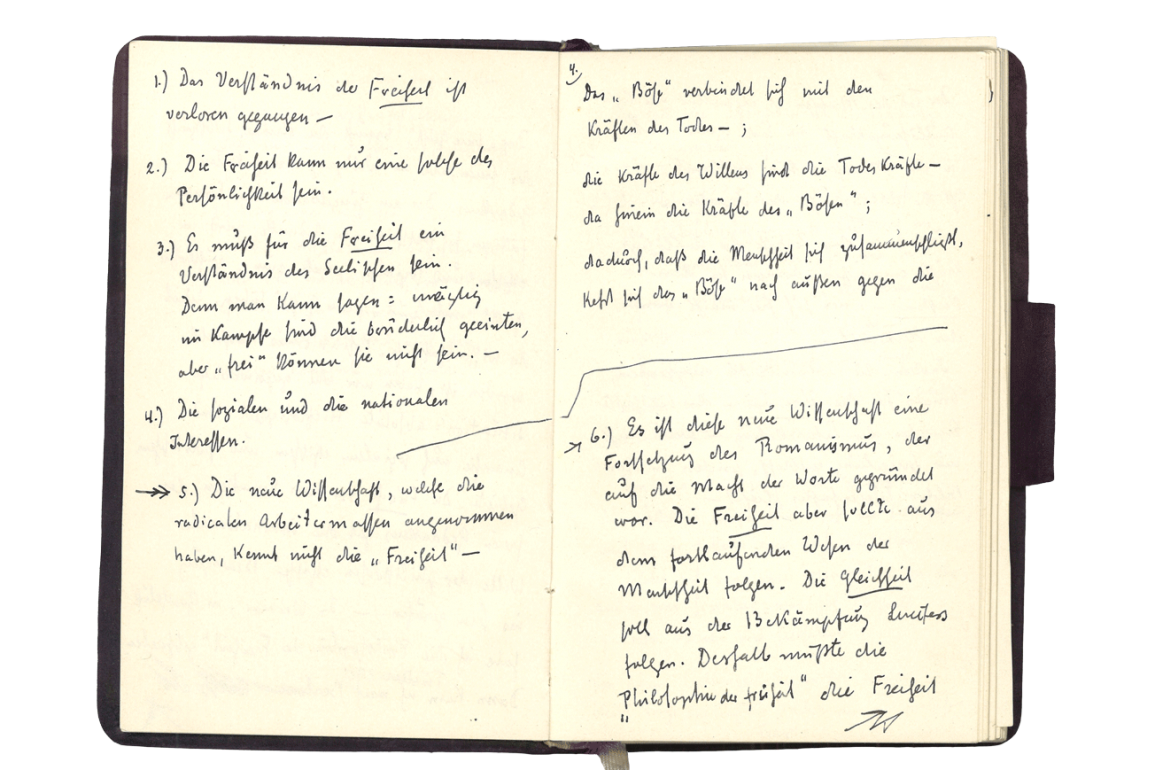 1.) Das Verständnis der Freiheit ist
verloren gegangen —
2.) Die Freiheit kann nur eine solche des
Persönlichkeit sein.
3.) Es muß für die Freiheit ein
Verständnis des Seelischen sein.
Denn man kann sagen: mächtig
im Kampfe sind die brüderlich geeinten,
aber „frei“ können sie nicht sein. —
4.) Die sozialen und die nationalen
Interessen.
5.) Die neue Wissenschaft, welche die
radicalen Arbeitermassen angenommen
haben, kennt nicht die „Freiheit“ —
4.
Das „Böse“ verbindet sich mit den
Kräften des Todes — ;
die Kräfte des Willens sind die Todes Kräfte —
da hinein die Kräfte des „Bösen“ ;
dadurch, daß die Menschheit sich zusammenschließt,
kehrt sich das „Böse“ nach außen gegen die
6.) Es ist diese neue Wissenschaft eine
Fortsetzung des Romanismus, der
auf die Macht der Worte gegründet
war. Die Freiheit aber sollte aus
dem fortlaufenden Wesen der
Menschheit folgen. Die Gleichheit
soll aus der Bekämpfung Lucifers
folgen. Deshalb mußte die
„Philosophie der Freiheit“ die Freiheit